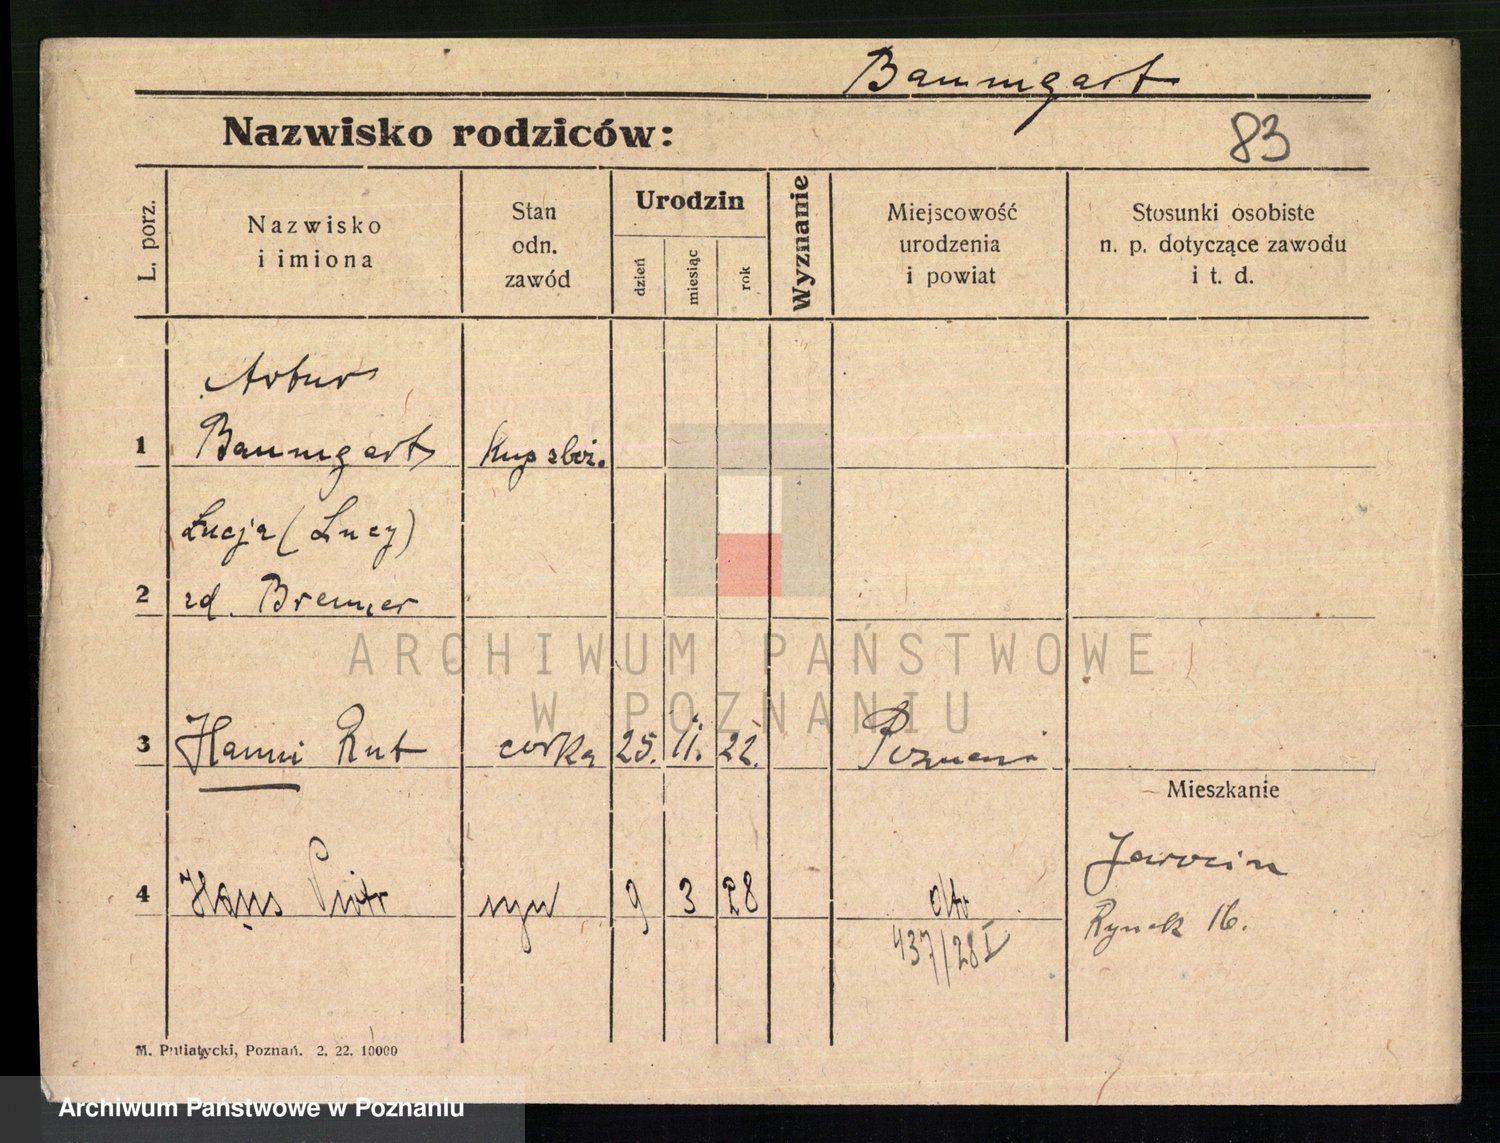 Baumgart
Nazwisko rodziców:
83
L. porz.
Nazwisko
i imiona
Stan
odn.
zawód
Urodzin
dzień
miesiąc
rok
Wyznanie
Miejscowość
urodzenia
i powiat
Stosunki osobiste
n. p. dotyczące zawodu
i t. d.
Artur
1 Baumgart Kup zboż.
Łucja (Lucy)
2 zd. Bremer
3 Hanni Rut córka 25. 11. 22. Poznań
Mieszkanie
4 Hans Piotr syn 9 3 28 dto
Jarocin
Rynek 16.
437/28 I
M. Putiatycki, Poznań. 2. 22. 10000
ARCHIWUM PAŃSTWOWE
W POZNANIU
Archiwum Państwowe w Poznaniu